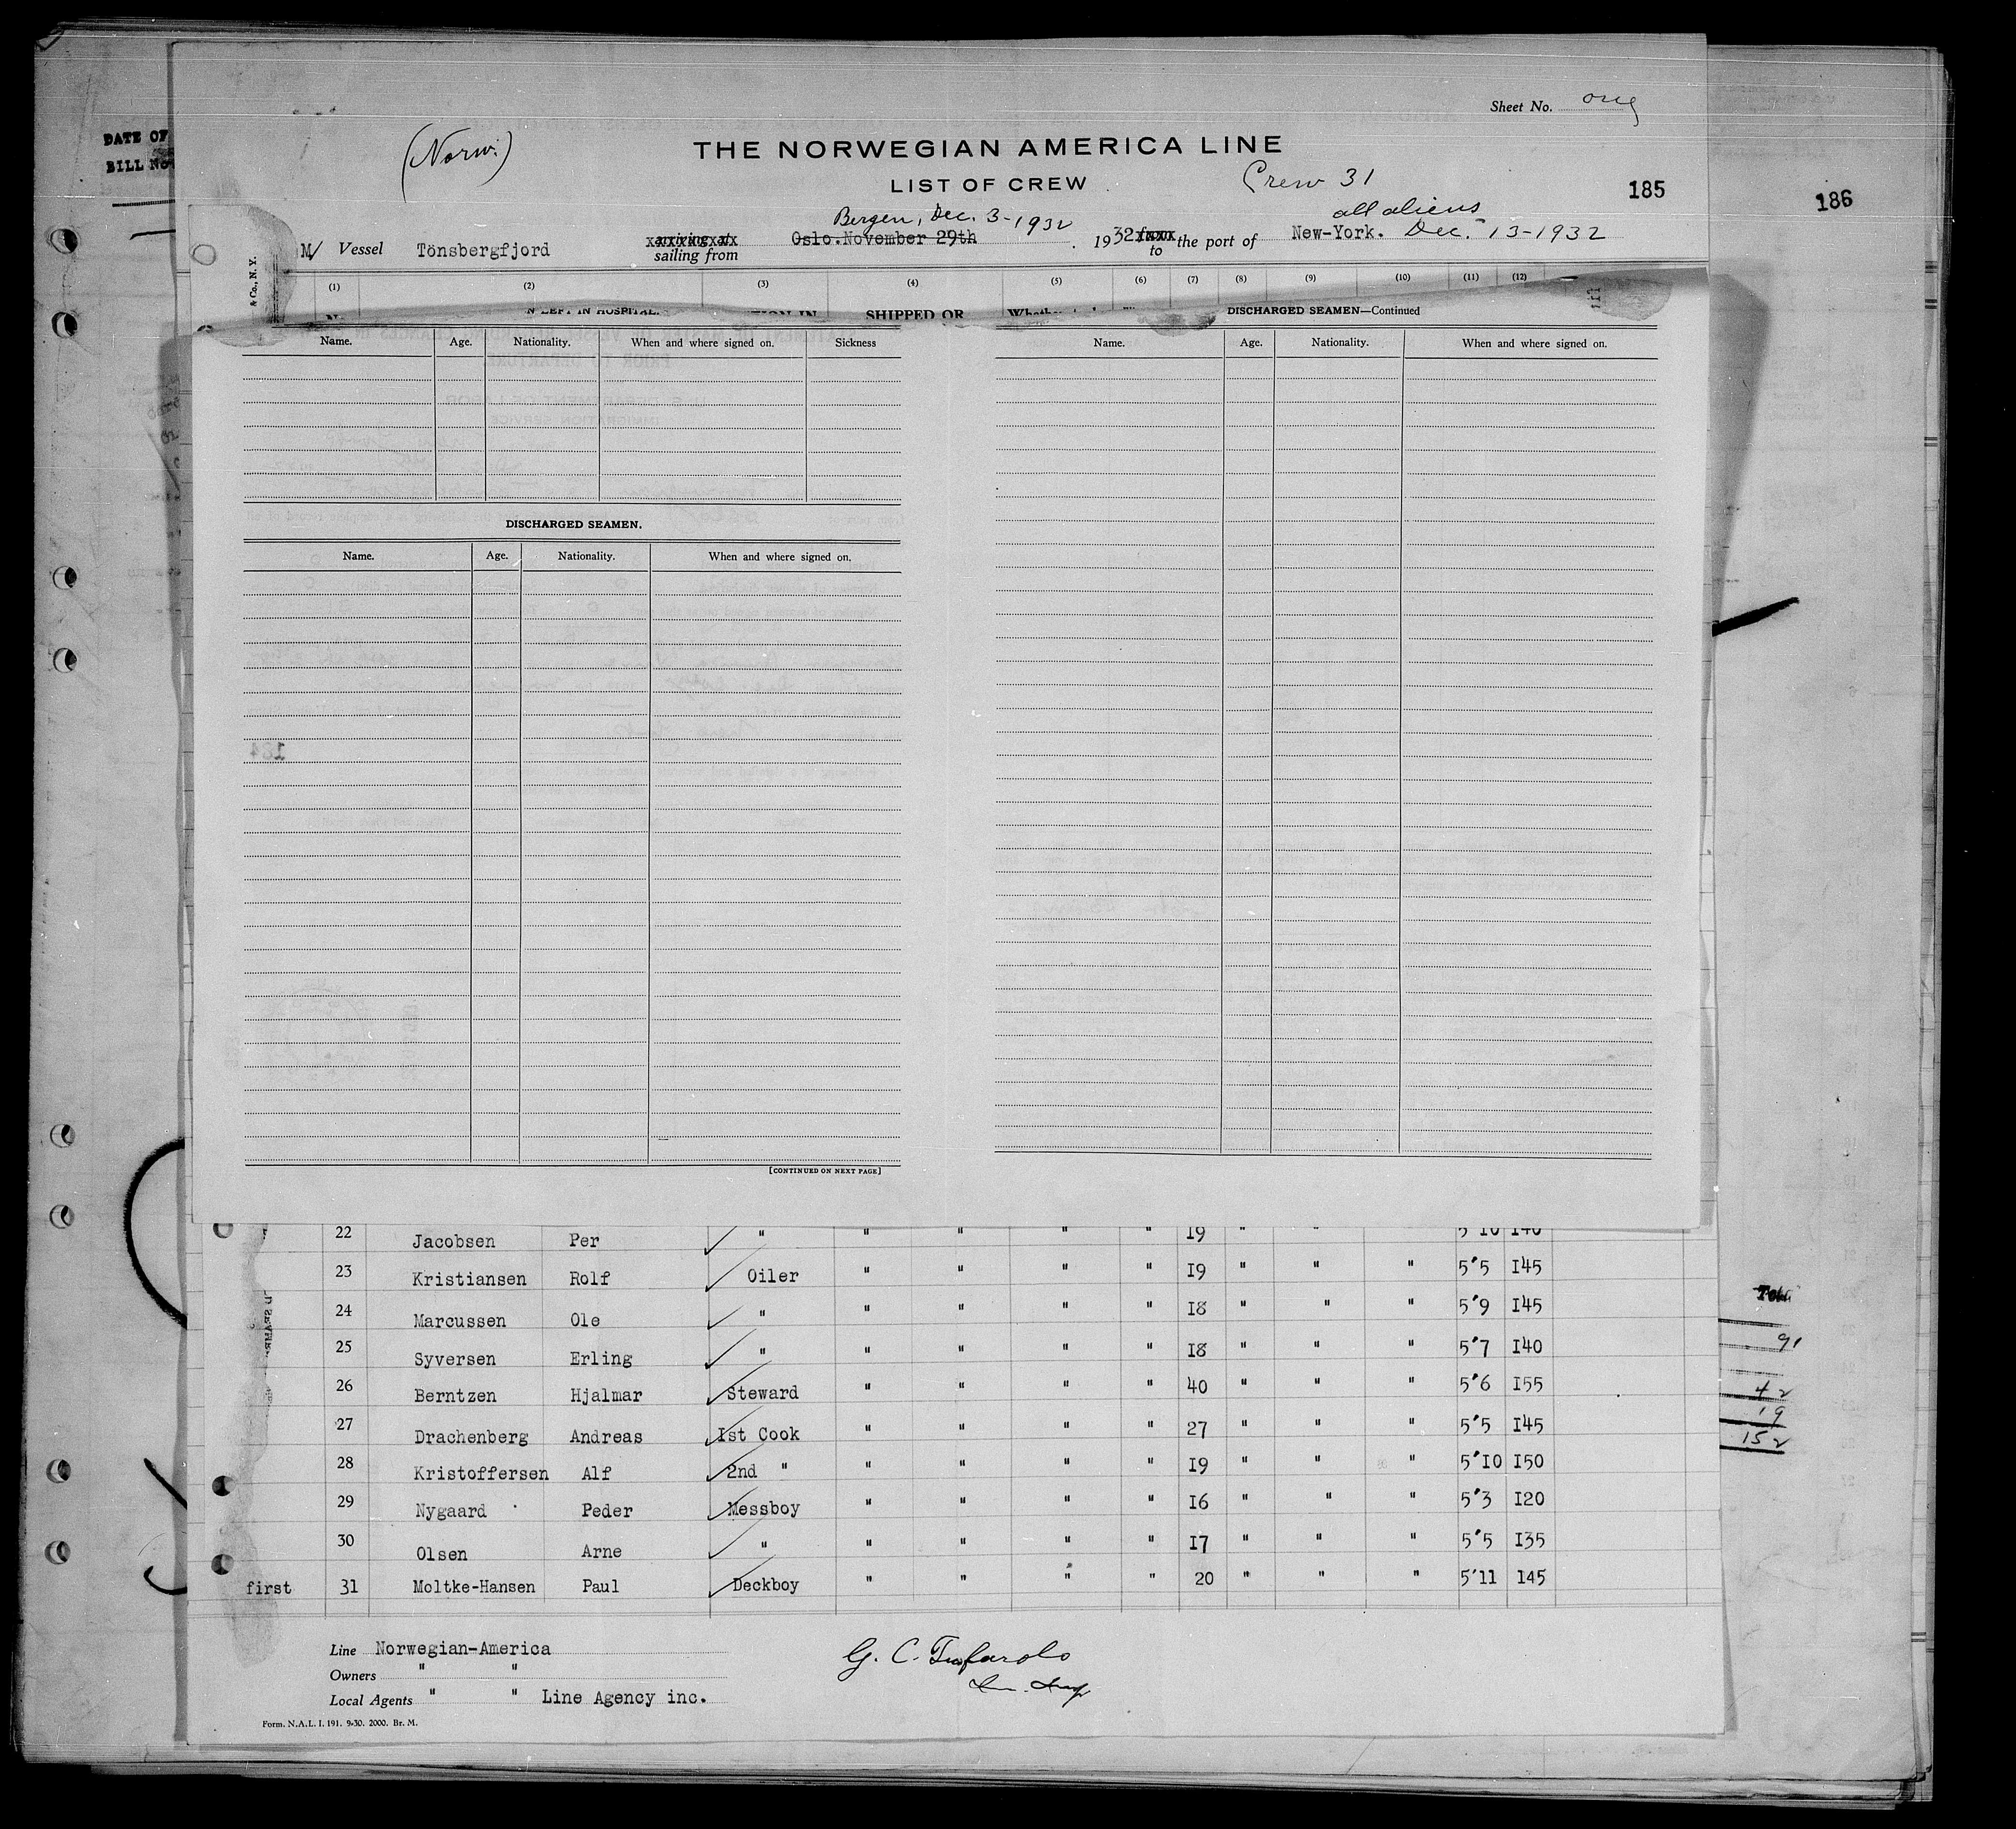 Sheet No.
DATE OF
(Norw.)
THE NORWEGIAN AMERICA LINE
BILL No
LIST OF CREW
Crew 31
185
186
Bergen, Dec. 3-1932
all aliens
M/ Vessel Tönsbergfjord sailing from Oslo.November 29th 1932 to the port of New-York. Dec. 13-1932
& Co., N. Y.
(1) (2) (3) (4) (5) (6) (7) (8) (9) (10) (11) (12)
N LEFT IN HOSPITAL. SHIPPED OR DISCHARGED SEAMEN—Continued
Name. Age. Nationality. When and where signed on. Sickness Name. Age. Nationality. When and where signed on.
DISCHARGED SEAMEN.
Name. Age. Nationality. When and where signed on.
[CONTINUED ON NEXT PAGE]
22 Jacobsen Per " " " " " 19 " " " 5'10 140
23 Kristiansen Rolf Oiler " " " " 19 " " " 5'5 145
24 Marcussen Ole " " " " " 18 " " " 5'9 145
25 Syversen Erling " " " " " 18 " " " 5'7 140
26 Berntzen Hjalmar Steward " " " " 40 " " " 5'6 155
27 Drachenberg Andreas Ist Cook " " " " 27 " " " 5'5 145
28 Kristoffersen Alf 2nd " " " " " 19 " " " 5'10 150
29 Nygaard Peder Messboy " " " " 16 " " " 5'3 120
30 Olsen Arne " " " " " 17 " " " 5'5 135
first 31 Moltke-Hansen Paul Deckboy " " " " 20 " " " 5'11 145
91
42
19
152
Line Norwegian-America
Owners " "
Local Agents " " Line Agency inc.
G. C.
Form. N.A.L. I. 191. 9-30. 2000. Br. M.